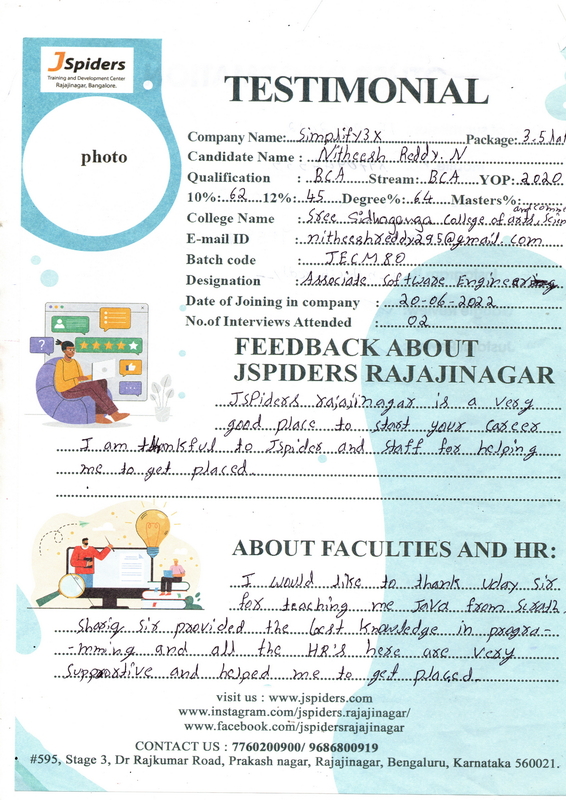 JSpiders
Training and Development Center
Rajajinagar, Bangalore.
TESTIMONIAL
photo
Company Name: Simplify3X Package: 3.5
Candidate Name : Nitheesh Reddy. N
Qualification : BCA Stream: BCA YOP: 2020
10%: 62 12%: 45 Degree%: 64 Masters%:
College Name : Sree Sidhaganga College of arts, 
E-mail ID : nitheeshreddy295@gmail.com
Batch code : JECM80
Designation : Associate Software Engineer
Date of Joining in company : 20-06-2022
No.of Interviews Attended : 02
FEEDBACK ABOUT
JSPIDERS RAJAJINAGAR
JSpiders rajajinagar is a very
good place to start your career
I am thankful to Jspider and staff for helping
me to get placed.
ABOUT FACULTIES AND HR:
I would like to thank Uday Sir
for teaching me Java from
Sharig Sir provided the best knowledge in progra-
-mming and all the HR's here are very
Supportive and helped me to get placed.
visit us : www.jspiders.com
www.instagram.com/jspiders.rajajinagar/
www.facebook.com/jspidersrajajinagar
CONTACT US : 7760200900/ 9686800919
#595, Stage 3, Dr Rajkumar Road, Prakash nagar, Rajajinagar, Bengaluru, Karnataka 560021.